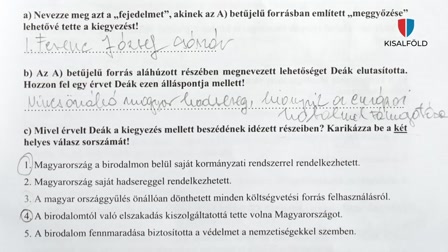 a) Nevezze meg azt a „fejedelmet”, akinek az A) betűjelű forrásban említett „meggyőzése”
lehetővé tette a kiegyezést!
KISALFÖLD
I. Ferenc József császár
b) Az A) betűjelű forrás aláhúzott részében megnevezett lehetőséget Deák elutasította.
Hozzon fel egy érvet Deák ezen álláspontja mellett!
Nincs önálló magyar hadsereg, hiányzik a európai
hatalmak támogatása
c) Mivel érvelt Deák a kiegyezés mellett beszédének idézett részeiben? Karikázza be a két
helyes válasz sorszámát!
1. Magyarország a birodalmon belül saját kormányzati rendszerrel rendelkezhetett.
2. Magyarország saját hadsereggel rendelkezhetett.
3. A magyar országgyűlés önállóan dönthetett minden költségvetési forrás felhasználásról.
4. A birodalomtól való elszakadás kiszolgáltatottá tette volna Magyarországot.
5. A birodalom fennmaradása biztosította a védelmet a nemzetiségekkel szemben.